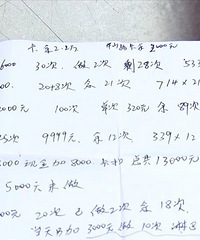 卡余2.2/2 卡3000元
6000 30次. 做2次 剩28次 533
20+3次 余21次 714×21
000元 100次 单次320元 余89次
5次 9999元. 余12次 339×12
000现金加8000卡扣 总共13000元
5000元未做
00元 20次 已做2次 余18次.
当天另加3000元做10次